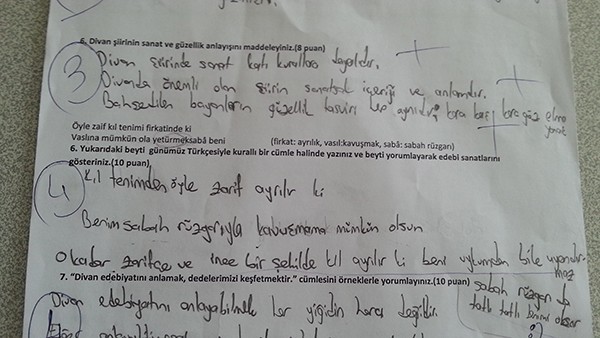 6. Divan şiirinin sanat ve güzellik anlayışını maddeleyiniz.(8 puan)
3
Divan şiirinde sanat katı kurallara dayalıdır.
Divanda önemli olan şiirin sanatsal içeriği ve anlamıdır.
Bahsedilen bayanların güzellik tasviri hep aynıdır; kara kaş, kara göz, elma
yanak
Öyle zaif kıl tenimi firkatinde ki
Vaslına mümkün ola yetürmek sabâ beni (firkat: ayrılık, vasıl:kavuşmak, sabâ: sabah rüzgarı)
6. Yukarıdaki beyti günümüz Türkçesiyle kurallı bir cümle halinde yazınız ve beyti yorumlayarak edebi sanatlarını
gösteriniz.(10 puan)
4
Kıl tenimden öyle zarif ayrılır ki
Benim sabah rüzgarıyla kavuşmama mümkün olsun
O kadar zarifçe ve ince bir şekilde kıl ayrılır ki beni uykumdan bile uyandır
maz
7. "Divan edebiyatını anlamak, dedelerimizi keşfetmektir." cümlesini örneklerle yorumlayınız.(10 puan)
sabah rüzgarı da
tatlı tatlı
Divan edebiyatını anlayabilmek her yiğidin harcı değildir.